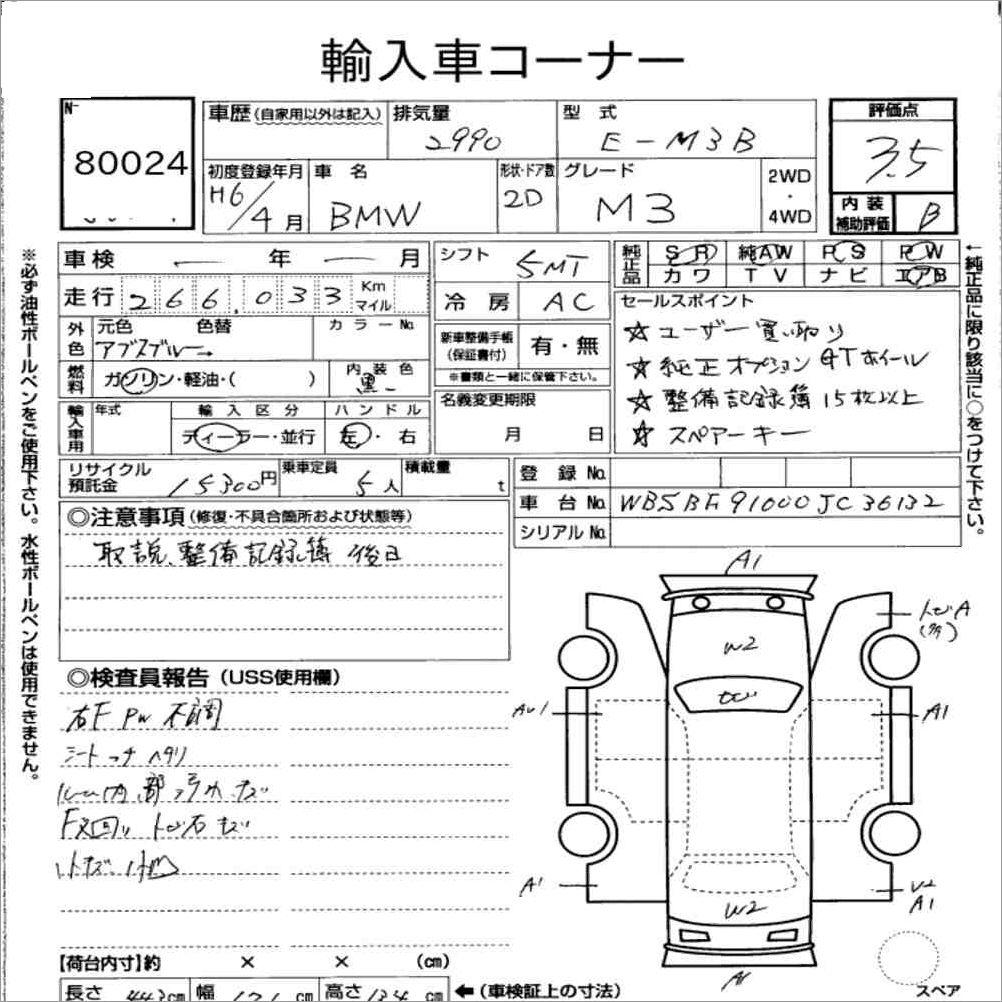 輸入車コーナー
No
80024
車歴 (自家用以外は記入)
排気量
2990
型 式
E-M3B
評価点
3.5
初度登録年月
H6/4月
車 名
BMW
形状・ドア数
2D
グレード
M3
2WD
・
4WD
内 装
補助評価
B
車検 ー 年 ー 月
シフト
5MT
純正品
SR 純AW PS PW
カワ TV ナビ エアB
走行 266,033 Km マイル
冷 房
AC
セールスポイント
☆ユーザー買い取り
☆純正オプション GTホイール
☆整備記録簿 15枚以上
☆スペアーキー
外色
元色 色替
アブスブルー→
カラーNo.
新車整備手帳
(保証書付)
有・無
※書類と一緒に保管下さい。
燃料
ガソリン・軽油・( )
内装色
黒
名義変更期限
月 日
輸入車用
年式
輸入区分
ディーラー・並行
ハンドル
左・右
リサイクル
預託金
15300円
乗車定員
5人
積載量
t
登 録 No.
車 台 No. WBSBF91000JC36132
シリアル No.
◎注意事項 (修復・不具合箇所および状態等)
取説、整備記録簿 後日
◎検査員報告 (USS使用欄)
右F PW 不調
シート コゲ ヘタリ
ルーム内部 汚れ キズ
F回り トビ石キズ
小キズ 小凹
A1
トビA
W2
AU1
A1
A1
W2
U2
A1
A1
【荷台内寸】約 × × (cm)
長さ 443cm 幅 171cm 高さ 134cm ←(車検証上の寸法)
スペア
※必ず油性ボールペンをご使用下さい。水性ボールペンは使用できません。
←純正品に限り該当に○をつけて下さい。